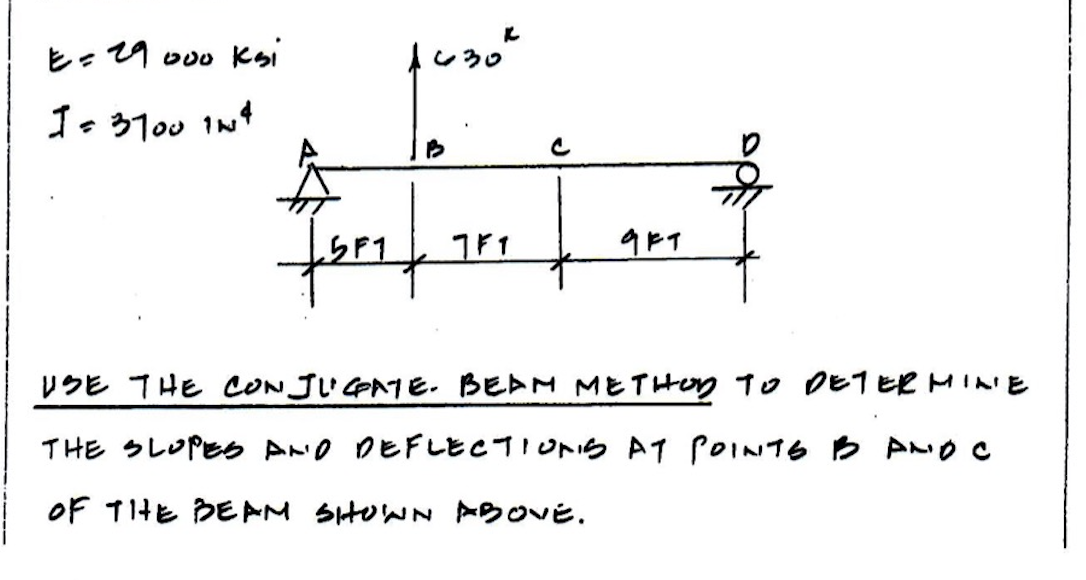 E = 29 000 Ksi
630 K
I = 3700 IN4
A B C D
5FT 7FT 9FT
USE THE CONJUGATE. BEAM METHOD TO DETERMINE
THE SLOPES AND DEFLECTIONS AT POINTS B AND C
OF THE BEAM SHOWN ABOVE.